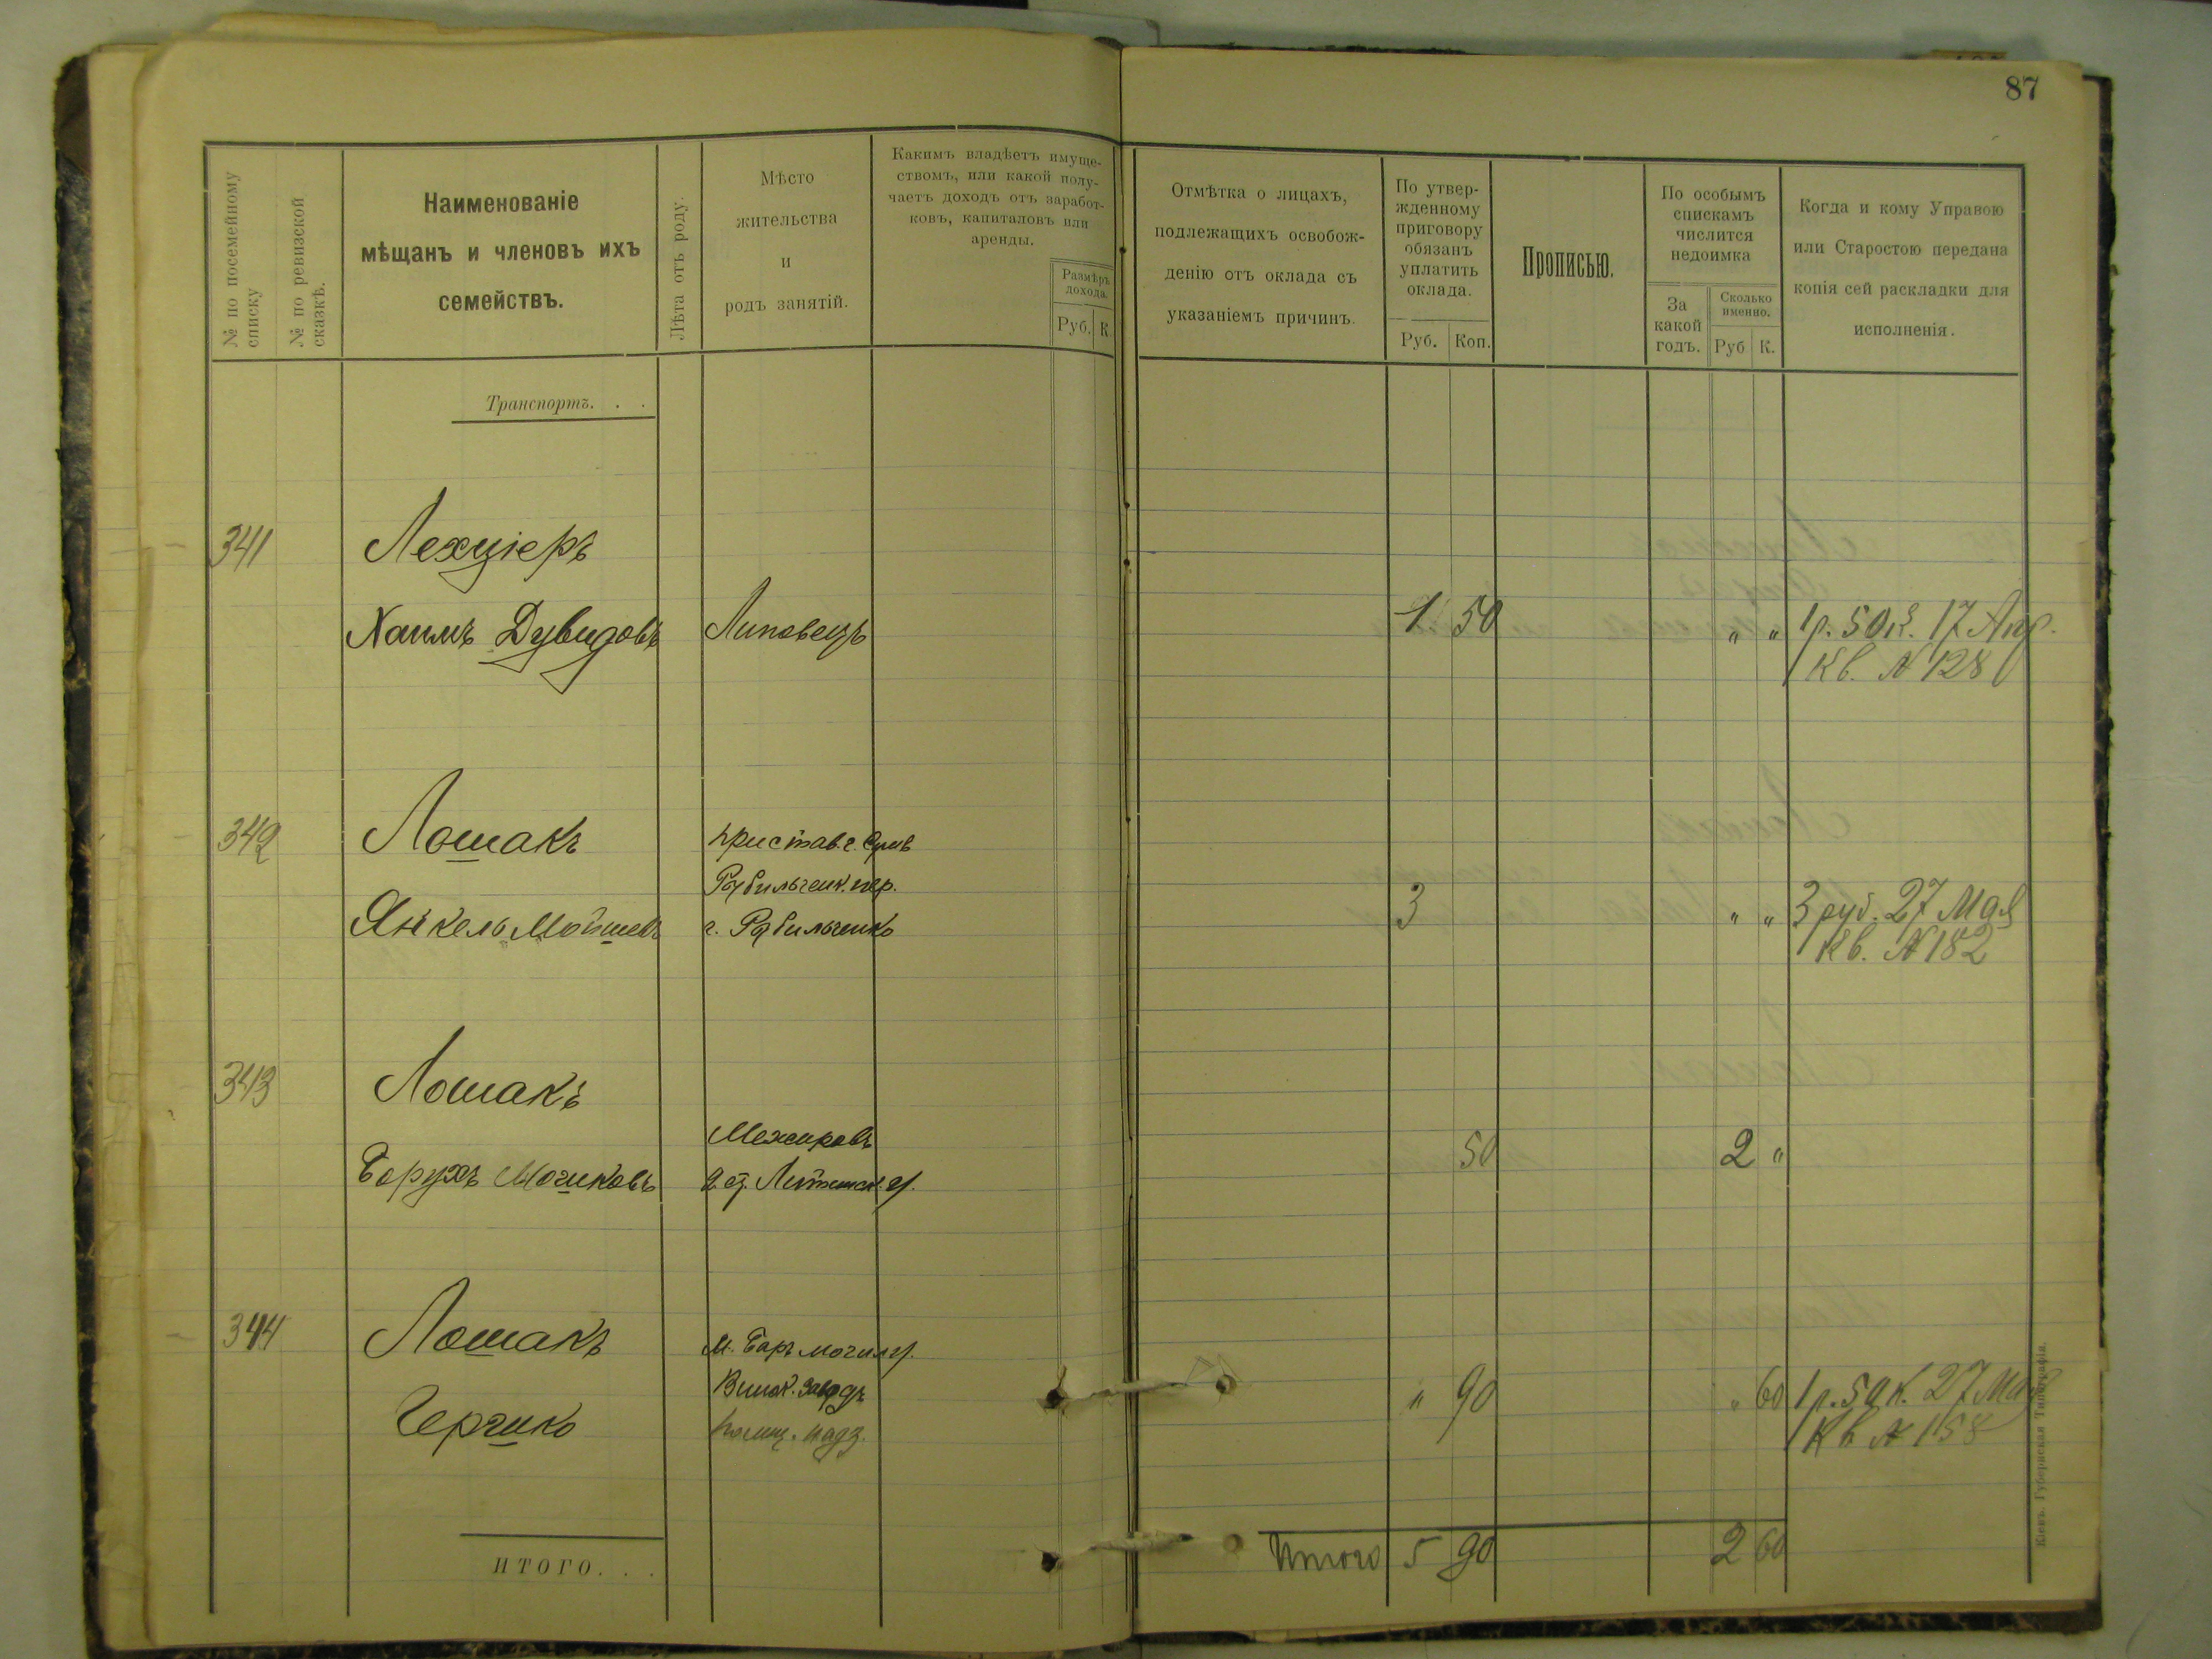 87
№ по посемейному списку
№ по ревизской сказкѣ.
Наименованіе
мѣщанъ и членовъ ихъ
семействъ.
Лѣта отъ роду.
Мѣсто
жительства
и
родъ занятій.
Какимъ владѣетъ имуще-
ствомъ, или какой полу-
чаетъ доходъ отъ заработ-
ковъ, капиталовъ или
аренды.
Размѣръ
дохода.
Руб. К.
Отмѣтка о лицахъ,
подлежащихъ освобож-
денію отъ оклада съ
указаніемъ причинъ.
По утвер-
жденному
приговору
обязанъ
уплатить
оклада.
Руб. Коп.
Прописью.
По особымъ
спискамъ
числится
недоимка
За
какой
годъ.
Сколько
именно.
Руб К.
Когда и кому Управою
или Старостою передана
копія сей раскладки для
исполненія.
Транспортъ. . .
341 Лехціеръ
Хаимъ Дувидовъ Липовецъ 1 50 " " 1 р. 50 к. 17 Апр.
Кв. № 128
342 Лошакъ пристав. г.
пер.
Янкель Мойшевъ г. 3 " " 3 руб. 27 Мая
Кв. № 182
343 Лошакъ
Межировъ 50 2 "
Борухъ Мочиковъ 2 ст. Литинск. у.
344 Лошакъ м. Баръ Могил. у.
Винок. заводъ " 90 " 60 1 р. 50 к. 27 Мая
Герчико полиц. надз. Кв № 158
ИТОГО. . . Итого 5 90 2 60
Кіевъ. Губернская Типографія.